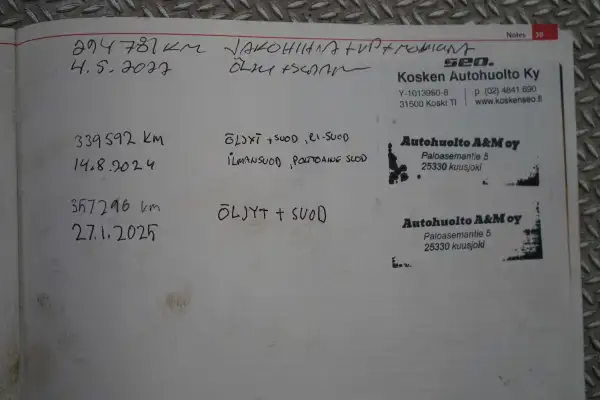 Notes 39
294 781 KM JAKOHIHNA + VP +
4.5.2022 ÖLJY +
seo.
Kosken Autohuolto Ky
Y-1013960-8 p. (02) 4841 690
31500 Koski Tl www.koskenseo.fi
339592 KM ÖLJYT + SUOD, RI-SUOD
14.8.2024 ILMANSUOD, POLTTOAINE SUOD
Autohuolto A&M oy
Paloasemantie 5
25330 kuusjoki
357296 km ÖLJYT + SUOD
27.1.2025
Autohuolto A&M oy
Paloasemantie 5
25330 kuusjoki